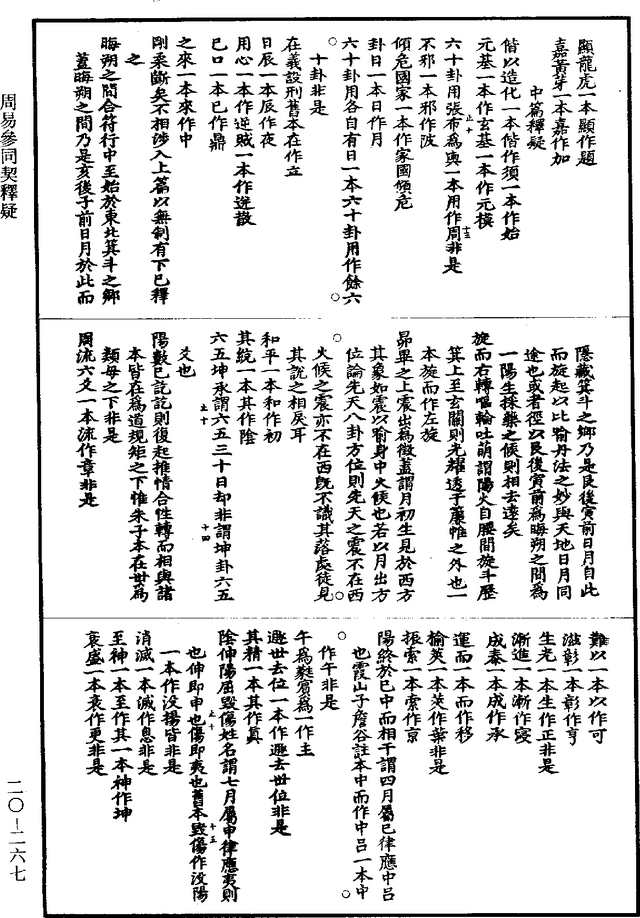 周易參同契釋疑
顯龍虎一本顯作題
嘉黃芽一本嘉作加
中篇釋疑
偕以造化一本偕作須一本作始
元基一本作玄基一本作元模
六十卦用張布為輿一本用作周非是
不邪一本邪作陂
傾危國家一本作家國傾危
卦日一本日作月
六十卦用各自有日一本六十卦用作餘六
十卦非是
在義設刑舊本在作立
日辰一本辰作夜
用心一本作逆賊一本作逆散
已口一本已作鼎
之來一本來作中
剛柔斷矣不相涉入上篇以無制有下已釋
之
晦朔之間合符行中至始於東北箕斗之鄉
蓋晦朔之間乃是亥後子前日月於此而
隱藏箕斗之鄉乃是艮後寅前日月自此
而旋起以比喻丹法之妙與天地日月同
途也或者徑以艮後寅前為晦朔之間為
一陽生採藥之候則相去遠矣
旋而右轉嘔輪吐萌謂陽火自腰間旋斗歷
箕上至玄關則光耀透于簾帷之外也一
本旋而作左旋
昴畢之上震出為徵蓋謂月初生見於西方
其象如震以喻身中火候也若以月出方
位論先天八卦方位則先天之震不在西
火候之震亦不在西旣不識其落處徒見
其說之相戾耳
和平一本和作初
其統一本其作陰
六五坤承謂六五三十日却非謂坤卦六五
爻也
陽數已訖訖則復起推情合性轉而相與諸
本皆在為道規矩之下惟朱子本在世為
類母之下非是
周流六爻一本流作章非是
難以一本以作可
滋彰一本彰作亨
生光一本生作正非是
漸進一本漸作寖
成泰一本成作承
運而一本而作移
榆莢一本莢作葉非是
振索一本索作京
陽終於巳中而相干謂四月屬巳律應中呂
也霞山子詹谷註本中而作中呂一本中
作午非是
午為蕤賓為一作主
遯世去位一本作遯去世位非是
其精一本其作真
陰伸陽屈毀傷姓名謂七月屬申律應夷則
也伸即申也傷即夷也舊本毀傷作沒陽
一本作沒揚皆非是
消滅一本滅作息非是
至神一本至作其一本神作坤
衰盛一本衰作更非是
二〇-二六七